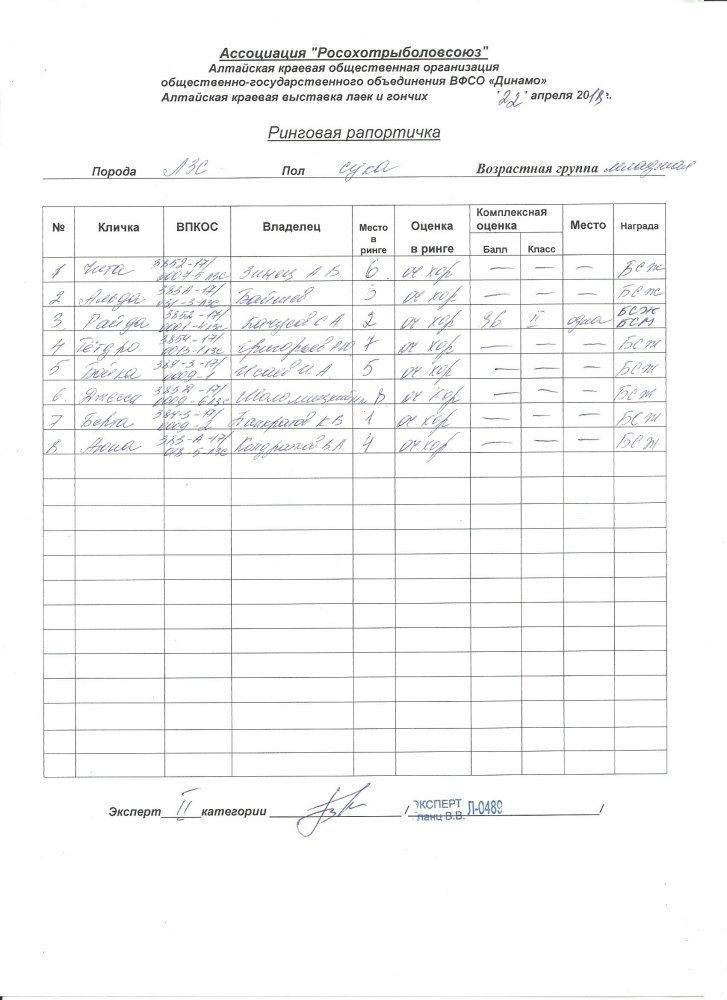 Ассоциация "Росохотрыболовсоюз"
Алтайская краевая общественная организация
общественно-государственного объединения ВФСО «Динамо»
Алтайская краевая выставка лаек и гончих "22" апреля 2018г.
Ринговая рапортичка
Порода ЛЗС Пол сука Возрастная группа младшая
№ Кличка ВПКОС Владелец Место в ринге Оценка в ринге Комплексная оценка Балл Класс Место Награда
1 Чита 3852-17/ Зинец А В 6 оч хор — — — БСЖ
2 Альда Байшев 3 оч хор — — — БСЖ
3 Райда 3852-17/ С А 2 оч хор 36 II одна БСЖ БСМ
4 3854-17/ Григорьев 7 оч хор — — — БСЖ
5 Бойка 0009-1 Исаев И. А 5 оч хор — — — БСЖ
6. Джесси 3852-17/ 8 оч хор — — — БСЖ
7 Берта 0009-2 К В 1 оч хор — — — БСЖ
8 4 оч хор — — — БСЖ
Эксперт II категории / ЭКСПЕРТ Л-0489 /
ланц В.В.